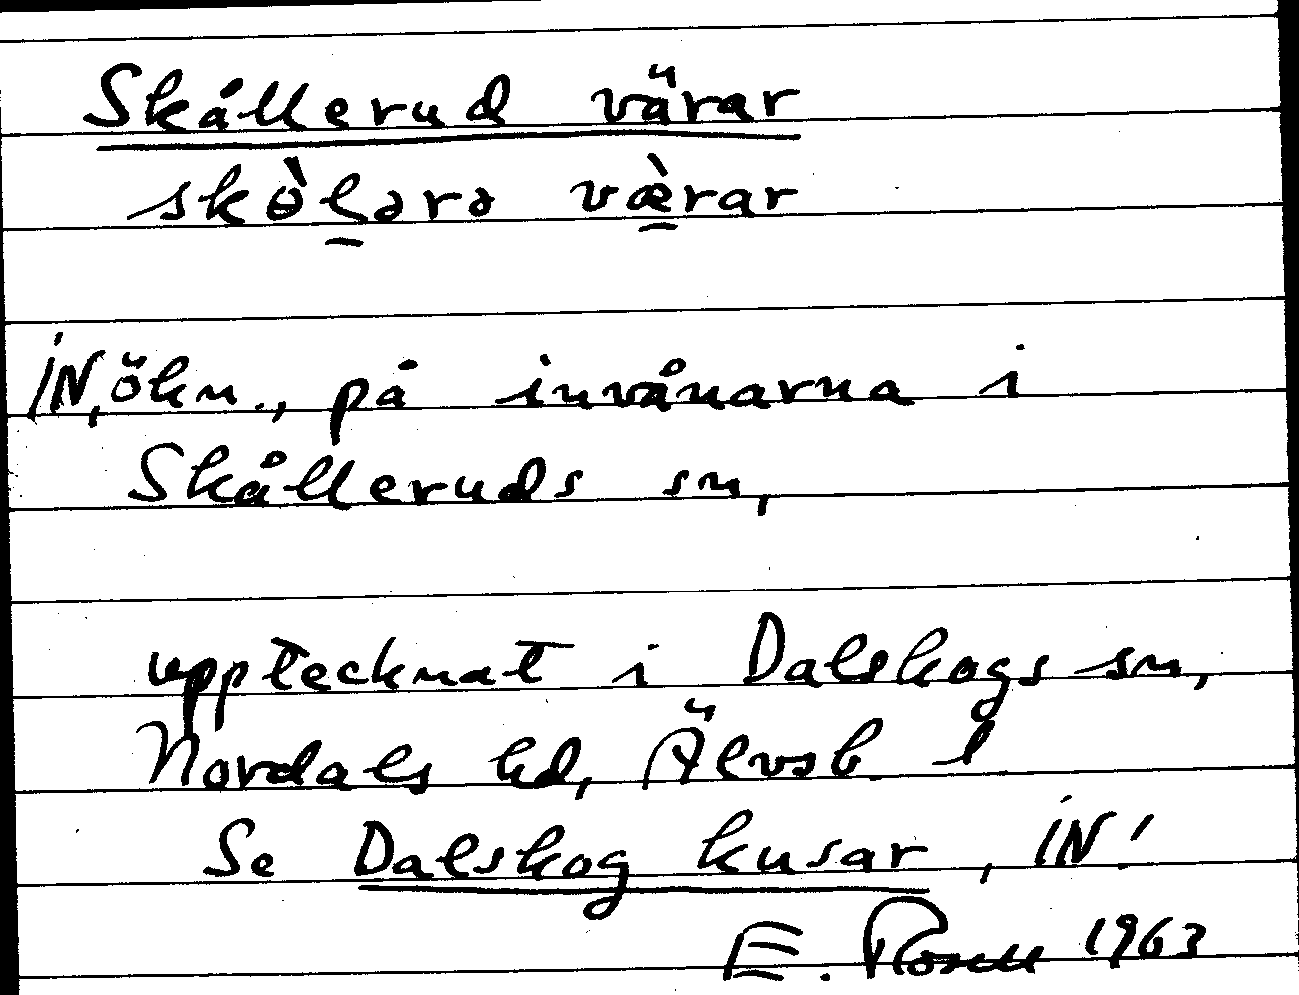 Skållerud värar
skòl̠ərə væ̠̀rar
IN, öknn., på invånarna i
Skålleruds sn,
upptecknat i Dalskogs sn,
Nordals hd, Älvsb. l
Se Dalskog kusar, IN!
E. Rosell 1963